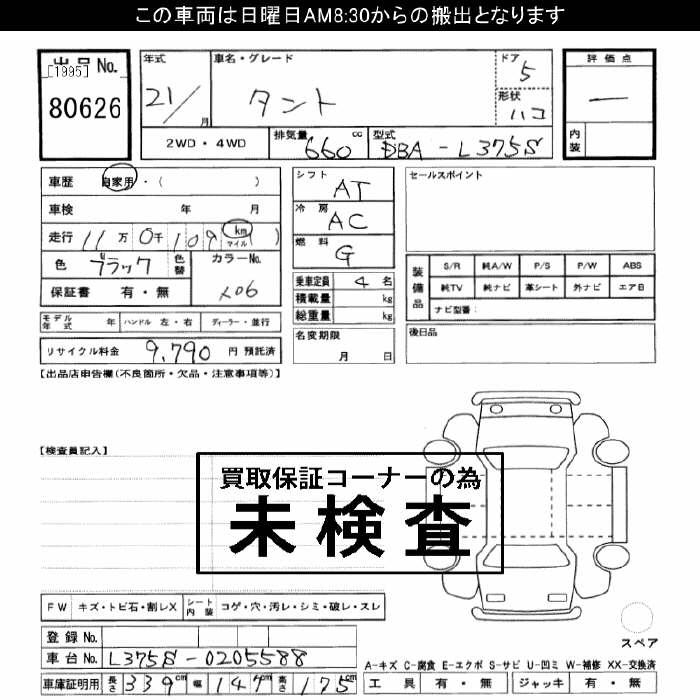 この車両は日曜日AM8:30からの搬出となります
出品 No.
[1995]
80626
年式
21/
月
車名・グレード
タント
ドア
5
形状
ハコ
評価点
ー
内装
2WD・4WD
排気量
660 cc
型式
DBA-L375S
車歴 自家用・( )
車検 年 月
走行 11万 0千 109 km マイル ( )
色 ブラック 色替 カラーNo.
X06
保証書 有・無
モデル年式 年 ハンドル 左・右 ディーラー・並行
リサイクル料金 9,790 円 預託済
シフト
AT
冷房
AC
燃料
G
乗車定員 4 名
積載量 kg
総重量 kg
名変期限
月 日
セールスポイント
装備品
S/R 純A/W P/S P/W ABS
純TV 純ナビ 革シート 外ナビ エアB
ナビ型番:
後日品
【出品店申告欄(不良箇所・欠品・注意事項等)】
【検査員記入】
買取保証コーナーの為
未検査
FW キズ・トビ石・割レX シート内装 コゲ・穴・汚レ・シミ・破レ・スレ
登録 No.
車台 No. L375S-0205588
車庫証明用 長さ 339cm 幅 147cm 高さ 175cm
スペア
A-キズ C-腐食 E-エクボ S-サビ U-凹ミ W-補修 XX-交換済
工具 有・無 ジャッキ 有・無